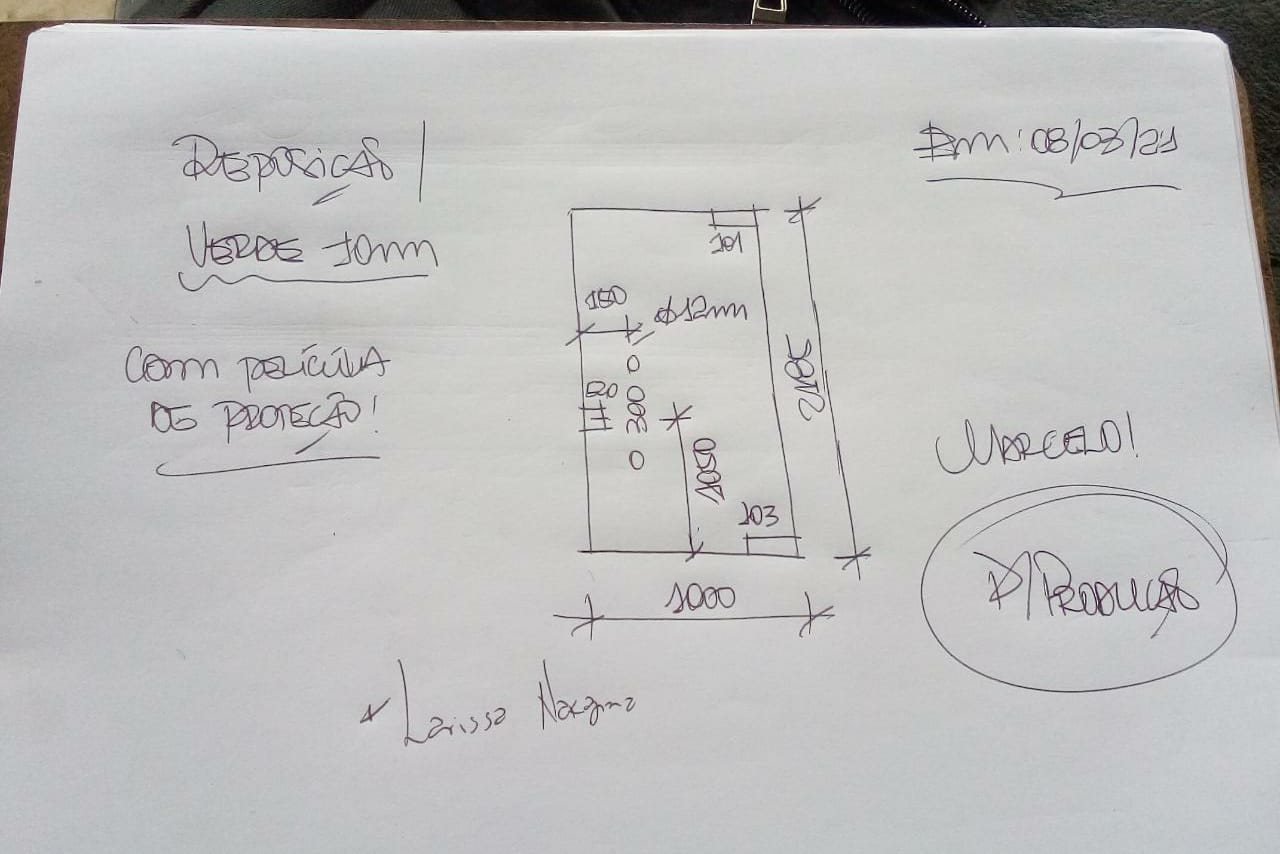 REPOSIÇÃO
VERDE 10mm
COM PELÍCULA
DE PROTEÇÃO!
Em: 08/03/21
101
150
Ø12mm
520
300
1050
103
1000
MARCELO!
P/PRODUÇÃO
Larissa